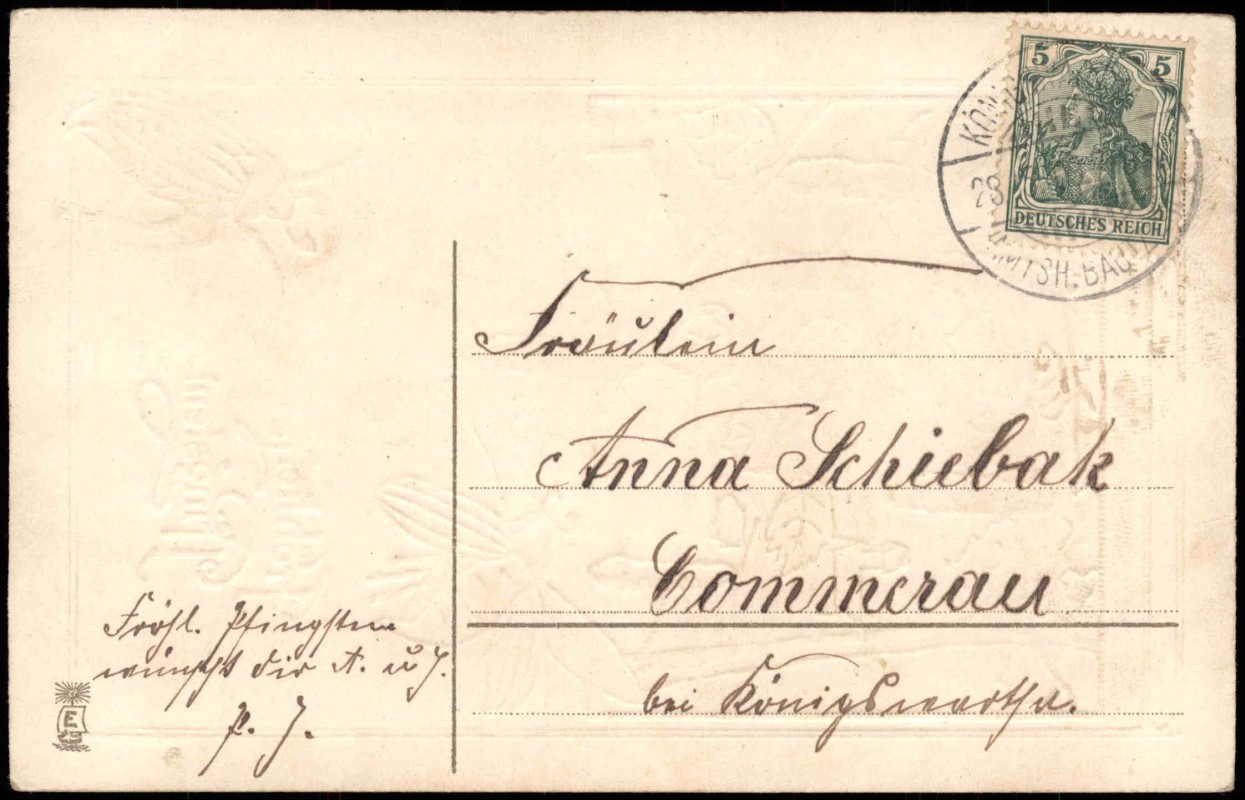 5 5
DEUTSCHES REICH
KÖNI
28
AMTSH. BAU
Fräulein
Anna Schiebak
Commerau
bei Königswartha.
Vergnügte
Fröhl. Pfingsten
wünscht dir A. u J.
P. J.
E